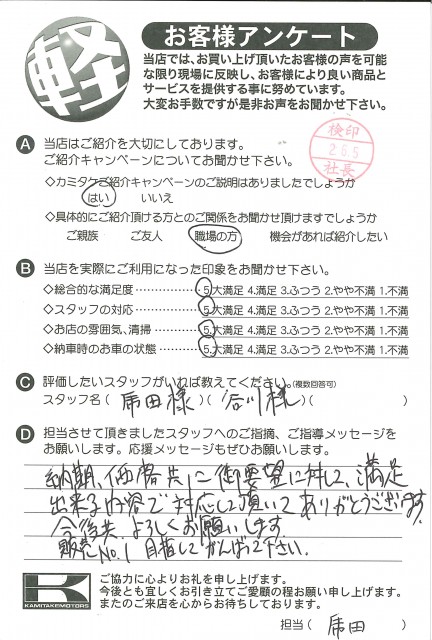 軽
お客様アンケート
当店では、お買い上げ頂いたお客様の声を可能
な限り現場に反映し、お客様により良い商品と
サービスを提供する事に努めています。
大変お手数ですが是非お声をお聞かせ下さい。
検印
2.6.5
社長
A 当店はご紹介を大切にしております。
ご紹介キャンペーンについてお聞かせ下さい。
◇カミタケご紹介キャンペーンのご説明はありましたでしょうか
はい いいえ
◇具体的にご紹介頂ける方とのご関係をお聞かせ頂けますでしょうか
ご親族 ご友人 職場の方 機会があれば紹介したい
B 当店を実際にご利用になった印象をお聞かせ下さい。
◇総合的な満足度 5.大満足 4.満足 3.ふつう 2.やや不満 1.不満
◇スタッフの対応 5.大満足 4.満足 3.ふつう 2.やや不満 1.不満
◇お店の雰囲気、清掃 5.大満足 4.満足 3.ふつう 2.やや不満 1.不満
◇納車時のお車の状態 5.大満足 4.満足 3.ふつう 2.やや不満 1.不満
C 評価したいスタッフがいれば教えてください。(複数回答可)
スタッフ名 ( 席田様 )( 谷川様 )( )
D 担当させて頂きましたスタッフへのご指摘、ご指導メッセージを
お願いします。応援メッセージもぜひお願いします。
納期、価格共に御要望に対して、満足
出来る内容で対応して頂いてありがとうございます。
今後共よろしくお願いします
販売No.1目指してがんばって下さい。
K
KAMITAKEMOTORS
ご協力に心よりお礼を申し上げます。
今後とも宜しくお引き立てご愛顧の程お願い申し上げます。
またのご来店を心からお待ちしております。
担当 ( 席田 )